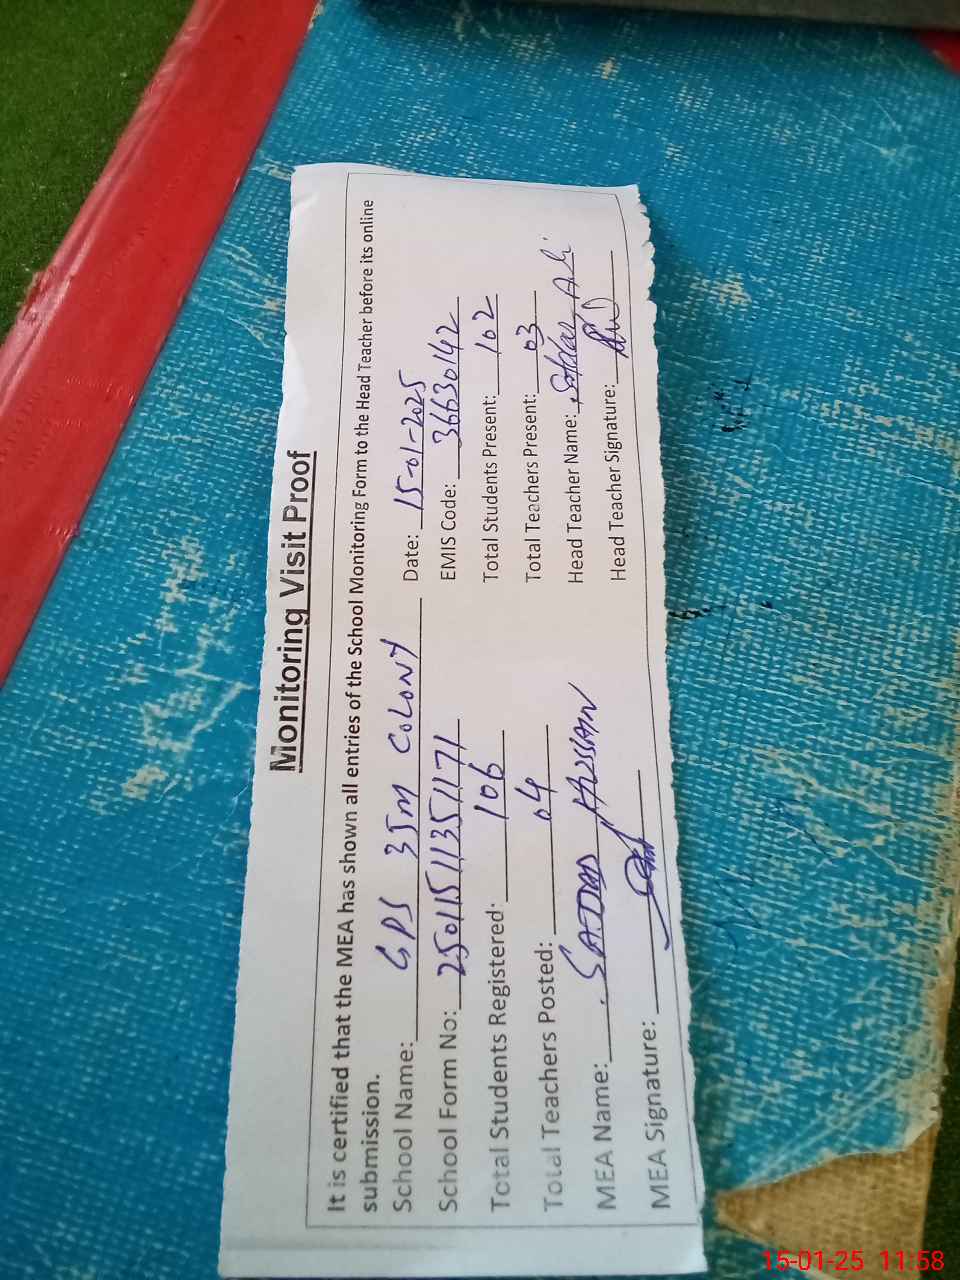 Monitoring Visit Proof
It is certified that the MEA has shown all entries of the School Monitoring Form to the Head Teacher before its online
submission.
School Name: GPS 35M COLONY Date: 15-01-2025
School Form No: 250115113511171 EMIS Code: 36630142
Total Students Registered: 106 Total Students Present: 102
Total Teachers Posted: 04 Total Teachers Present: 03
MEA Name: SAJJAD HUSSAIN Head Teacher Name: Ali
MEA Signature: Head Teacher Signature:
15-01-25 11:58